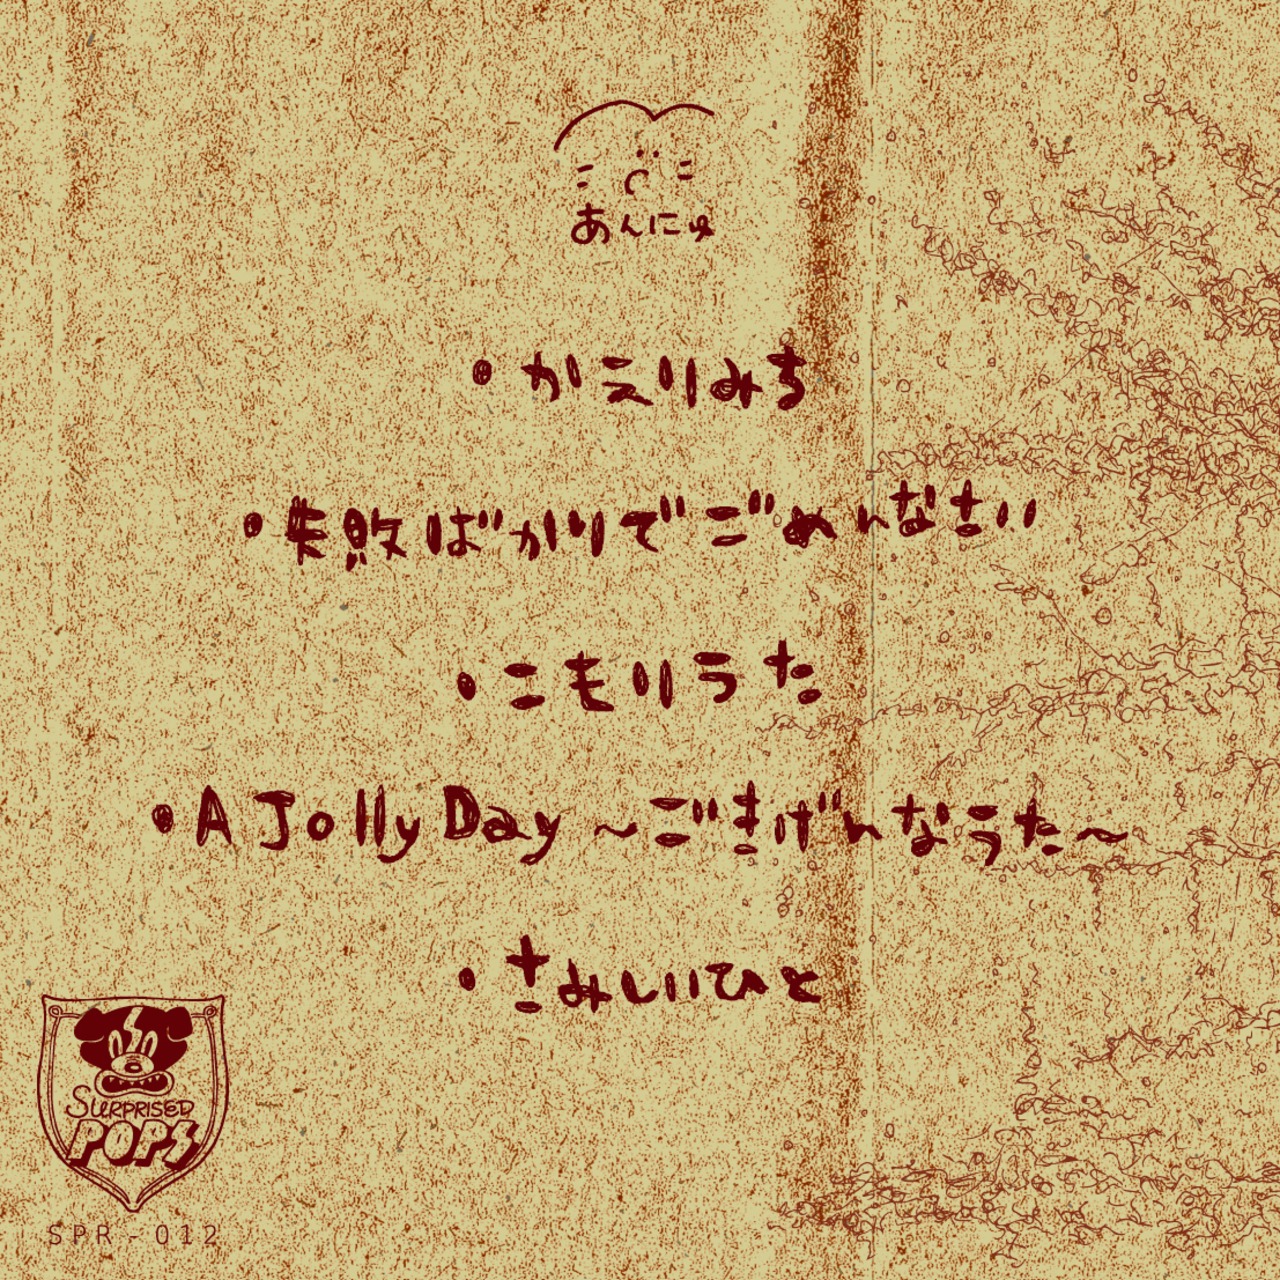 あんにゅ
・かえりみち
・失敗ばかりでごめんなさい
・こもりうた
・A Jolly Day ～ごきげんなうた～
・さみしいひと
SURPRISED
POPS
SPR-012